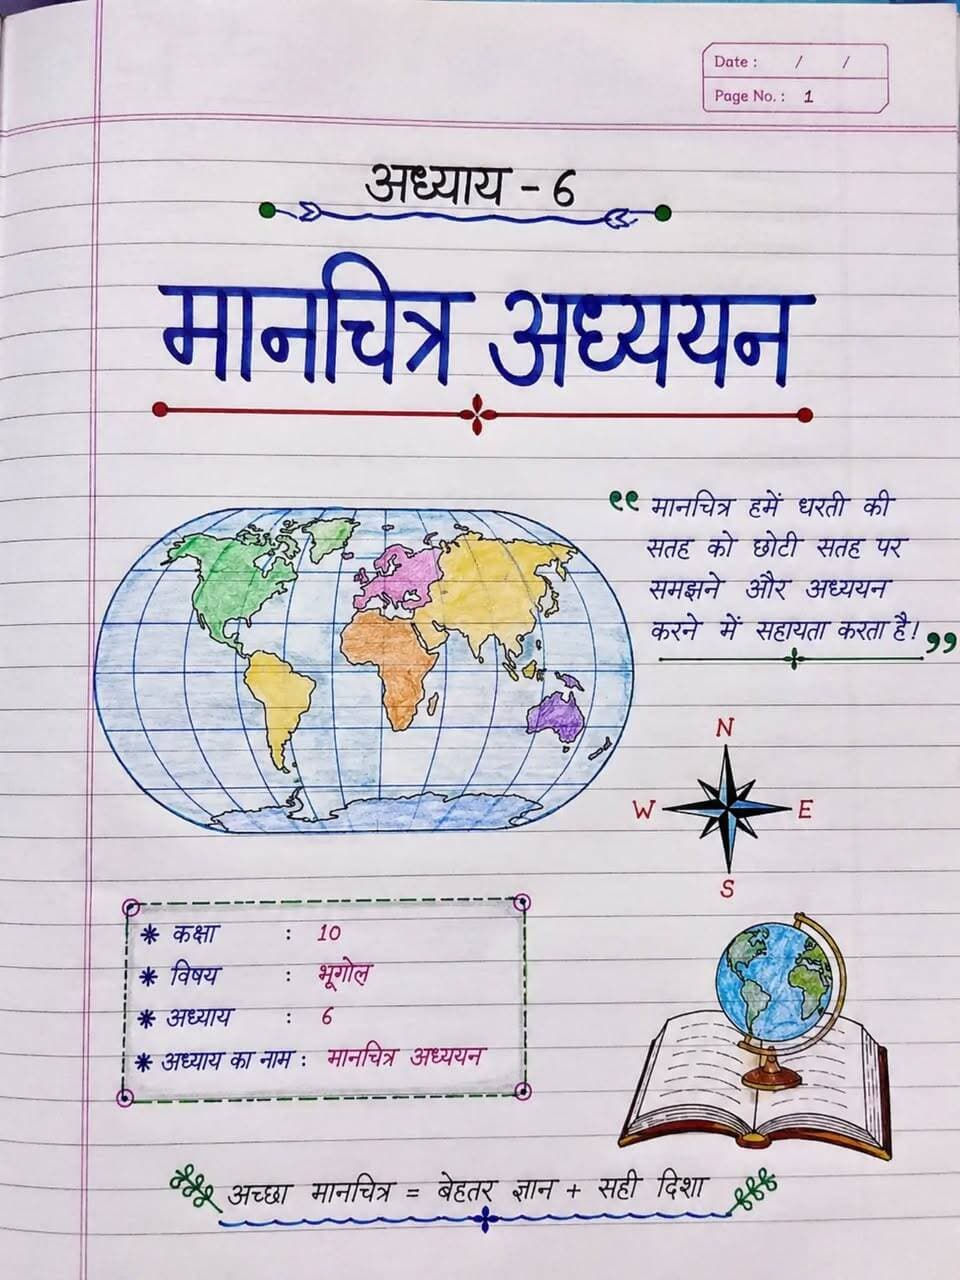 Date : / /
Page No. : 1
अध्याय - 6
मानचित्र अध्ययन
“ मानचित्र हमें धरती की
सतह को छोटी सतह पर
समझने और अध्ययन
करने में सहायता करता है! ”
N
W E
S
* कक्षा : 10
* विषय : भूगोल
* अध्याय : 6
* अध्याय का नाम : मानचित्र अध्ययन
अच्छा मानचित्र = बेहतर ज्ञान + सही दिशा